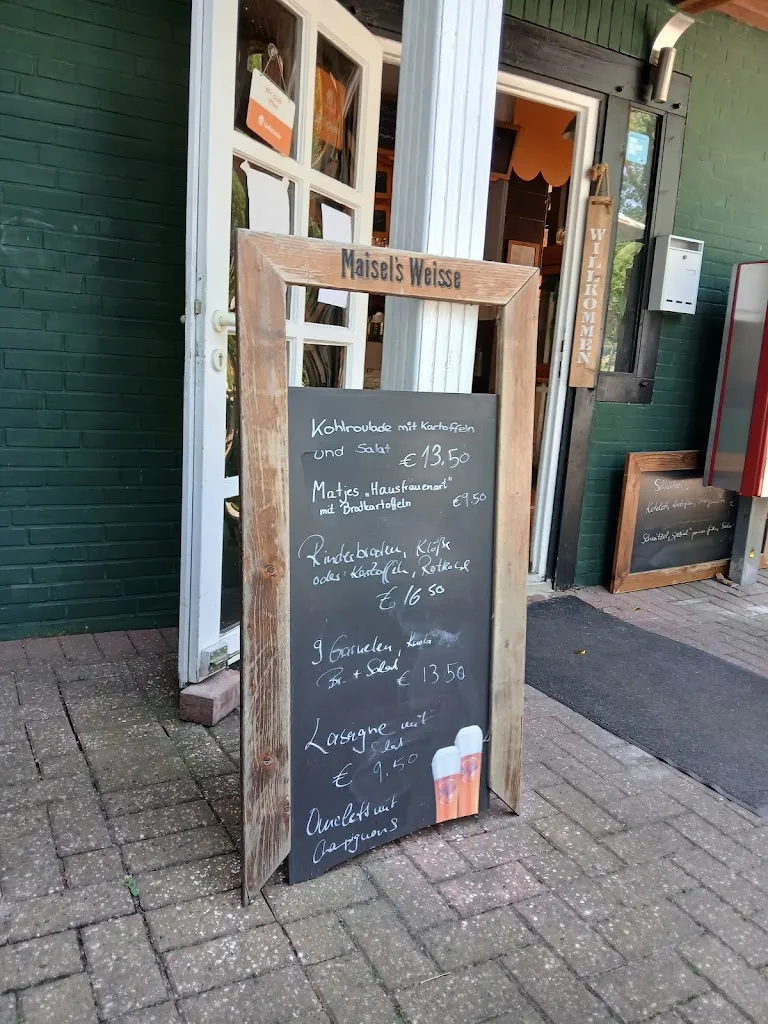 Maisel's Weisse
Kohlroulade mit Kartoffeln
und Salat € 13.50
Matjes „Hausfrauenart"
mit Bratkartoffeln €9.50
Rinderbraten, Klöße
oder Kartoffeln, Rotkohl
€ 16.50
9 Garnelen,
Br. + Salad € 13.50
Lasagne mit
Salat
€ 9.50
Omelett mit
Champignons
WILLKOMMEN